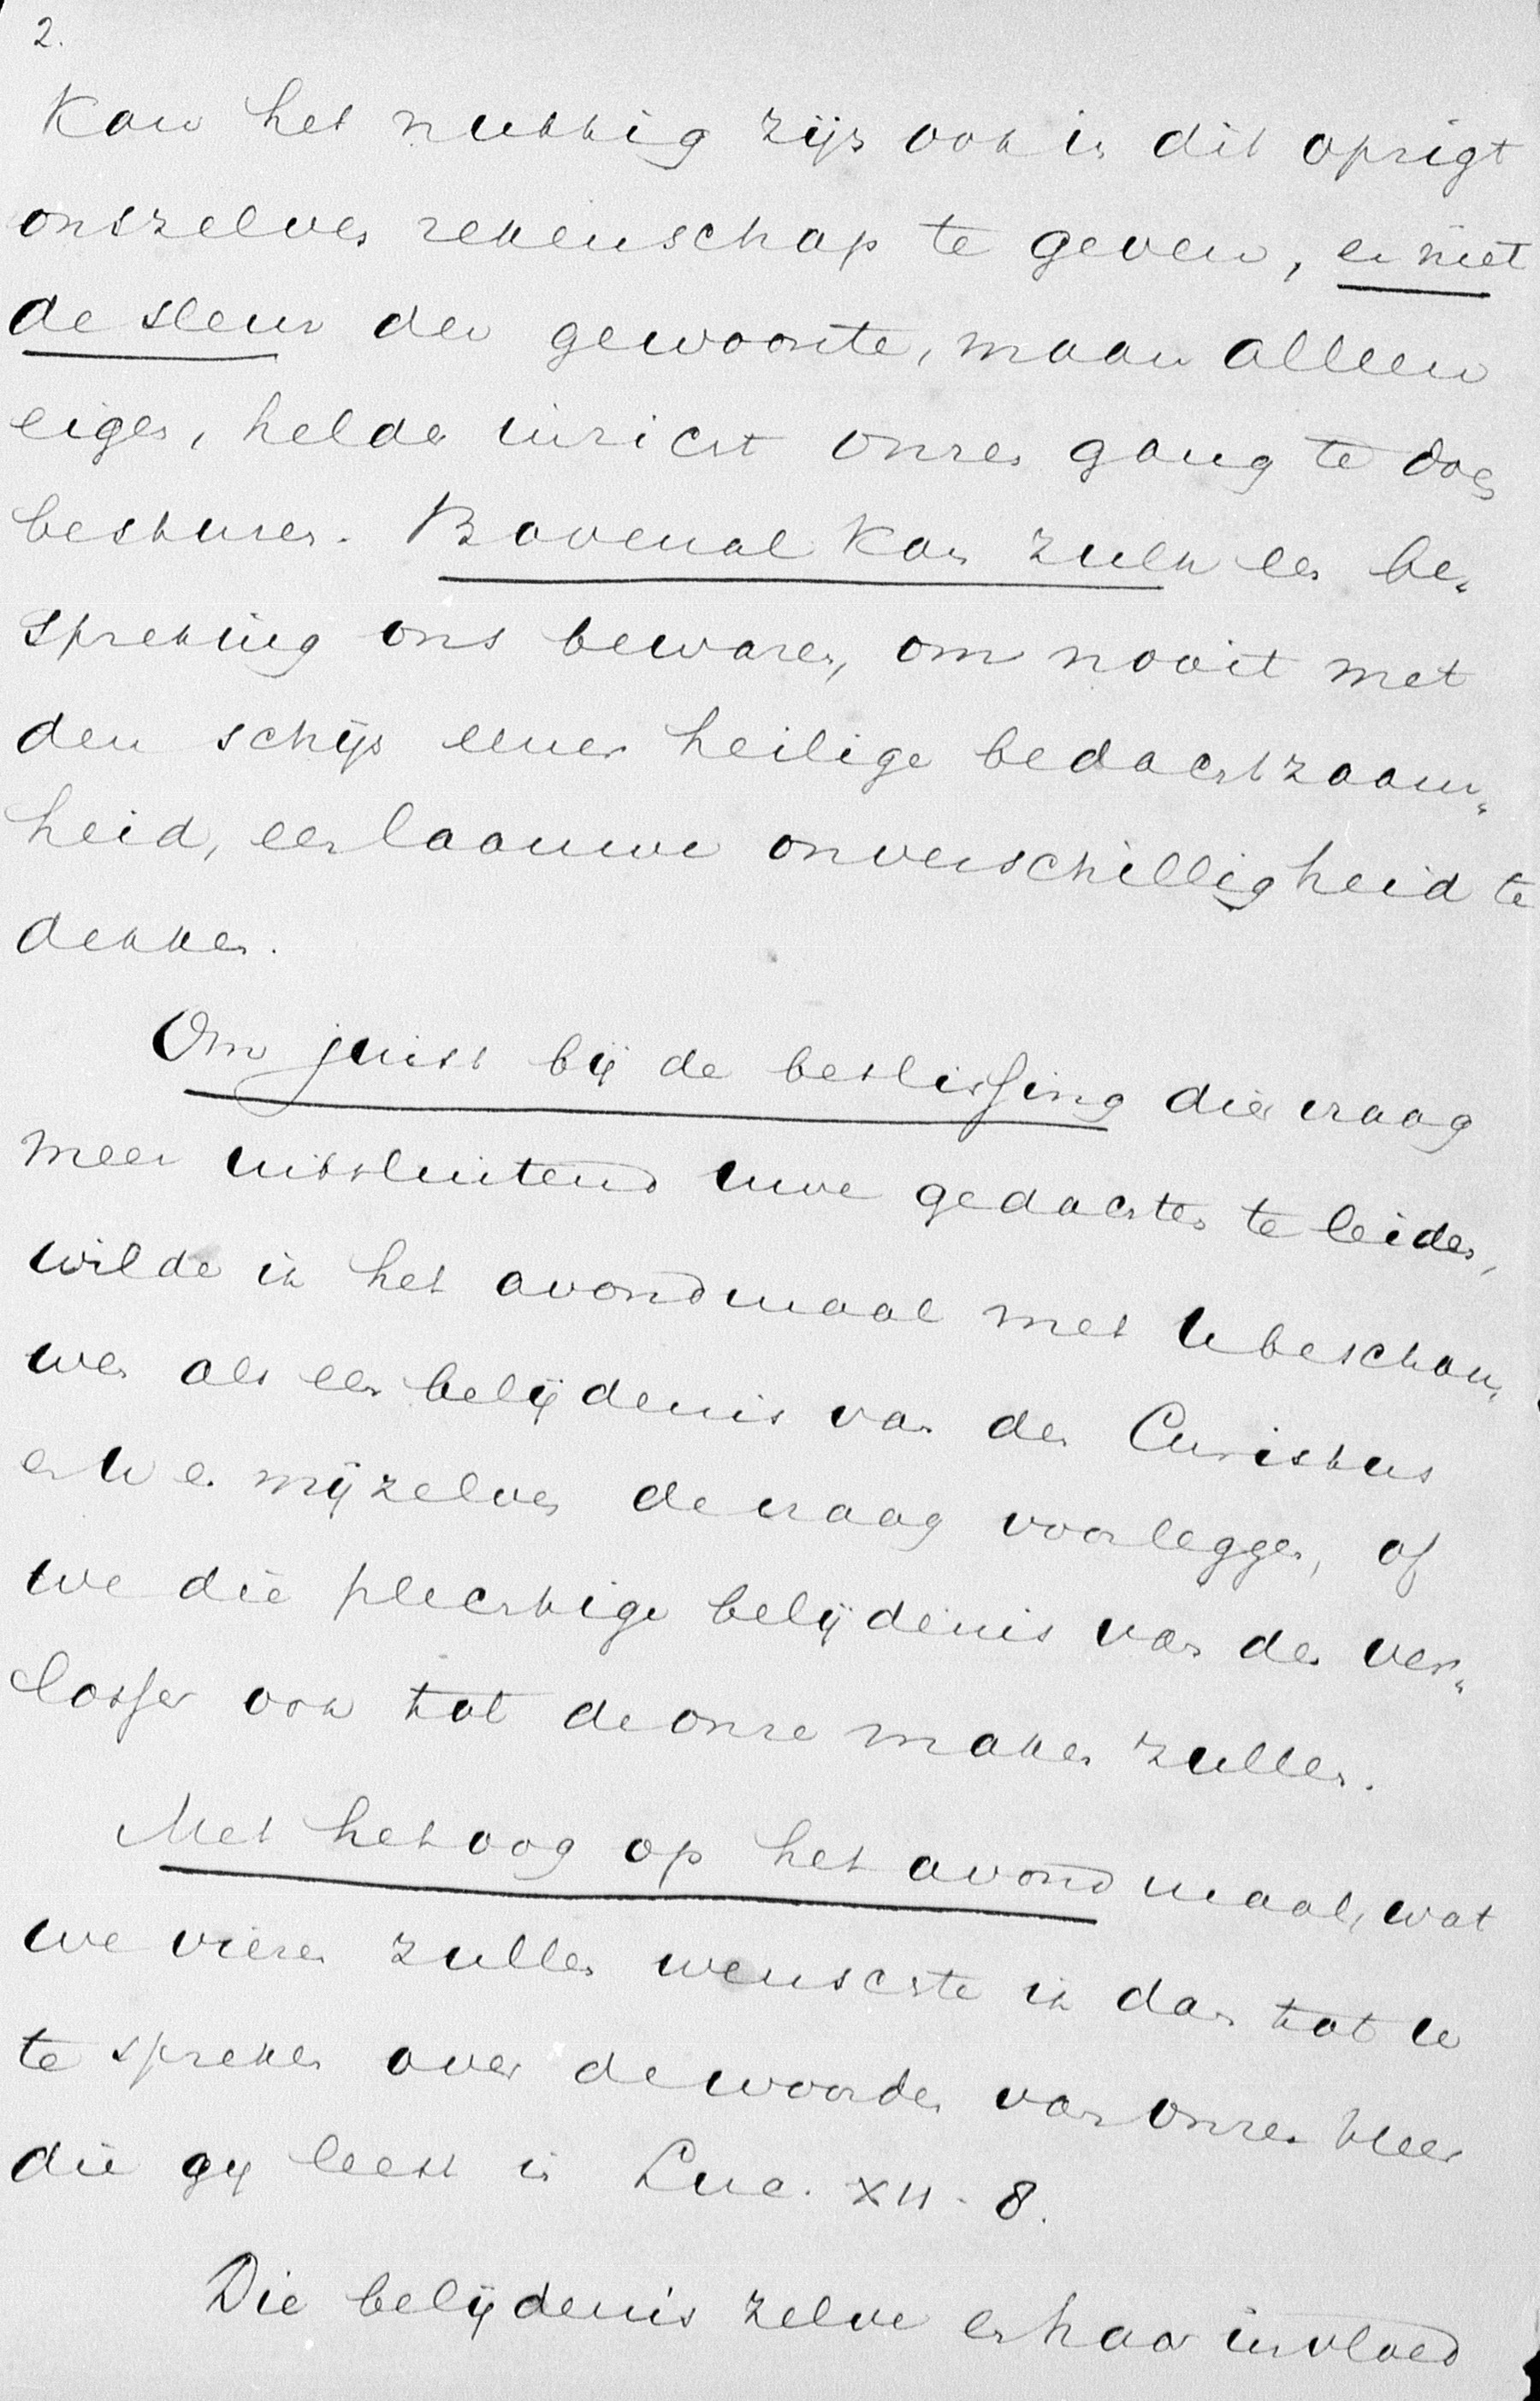 2.
Kan het nuttig zijn ook in dit opzigt
onszelven rekenschap te geven, en niet
de sleur der gewoonte, maar alleen
eigen, helder inzicht onzen gang te doen
besturen. Bovenal kan zulk een be„
spreking ons bewaren, om nooit met
den schijn eener heilige bedachtzaam„
heid, een laauwe onverschilligheid te
dekken.
Om juist bij de beslissing dier vraag
meer uitsluitend uwe gedachten te leiden,
wilde ik het avondmaal met U beschou„
wen als een belijdenis van den Christus
en U en mijzelven de vraag voorleggen, of
we die plechtige belijdenis van den ver„
losser ook tot de onze maken zullen.
Met het oog op het avondmaal, wat
we vieren zullen wenschte ik dan tot U
te spreken over de woorden van onzen Heer
die gij leest in Luc. XII. 8.
Die belijdenis zelve en haar invloed